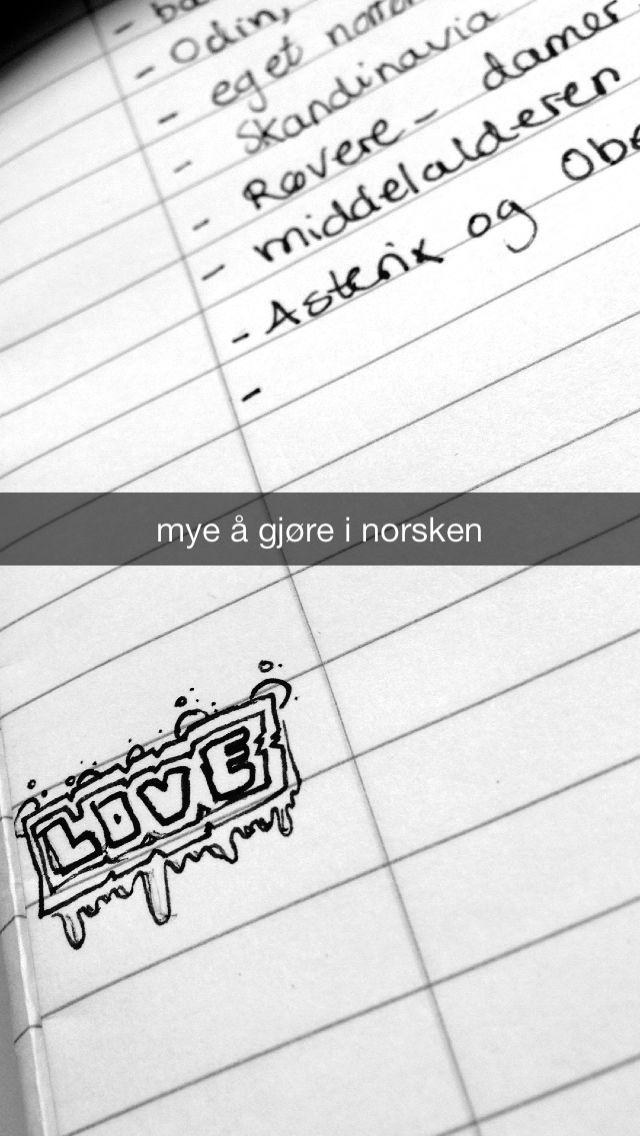 - Odin,
- eget
- Skandinavia
- Røvere - damer
- middelalderen
- Asterix og
-
mye å gjøre i norsken
LOVE